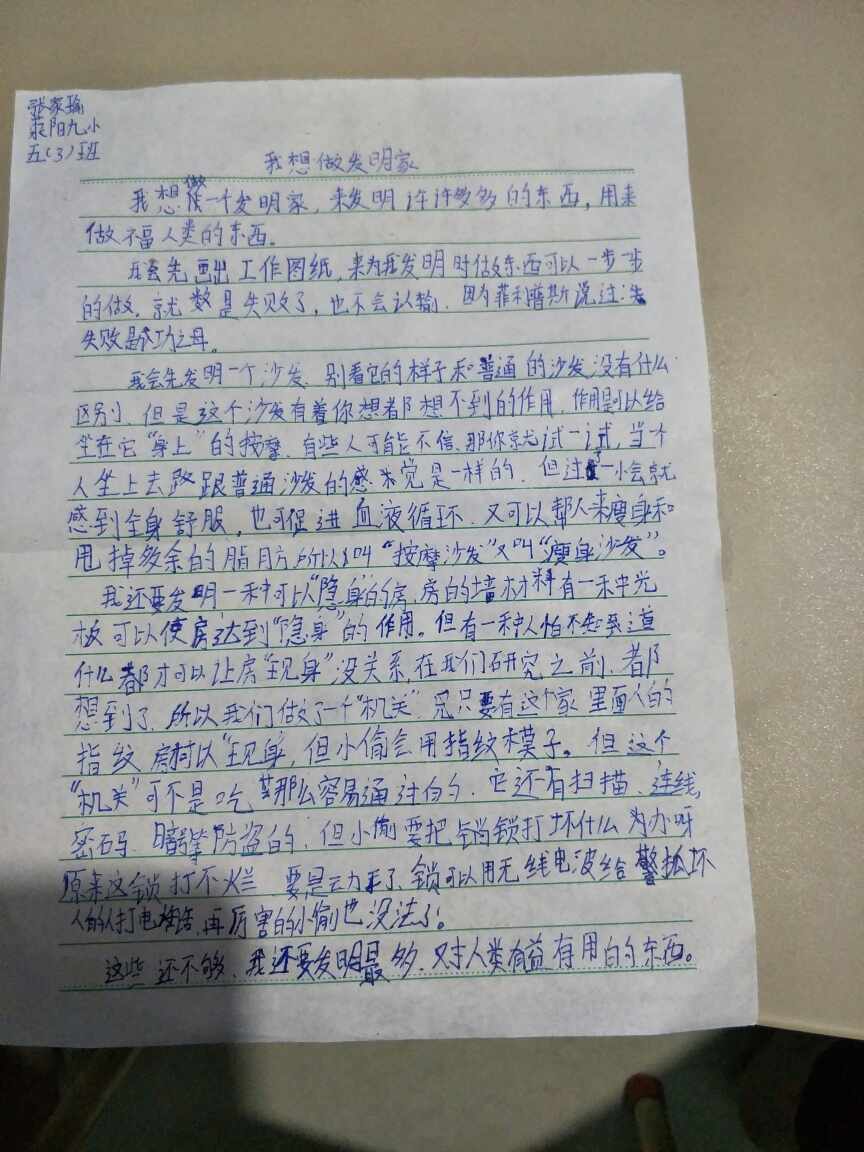 张家瑜
荥阳九小
五(3)班
我想做发明家
我想做一个发明家，来发明许许多多的东西，用来
做福人类的东西。
我会先画出工作图纸，来为我发明时做东西可以一步一步
的做。就数是失败了，也不会认输。因为菲利普斯说过：
失败是成功之母。
我会先发明一个沙发，别看它的样子和普通的沙发没有什么
区别，但是这个沙发有着你想都想不到的作用。作用是可以给
坐在它“身上”的按摩，有些人可能不信，那你就试一试，当个
人坐上去跟普通沙发的感觉是一样的，但过一小会就
感到全身舒服，也可促进血液循环，又可以帮人来瘦身和
甩掉多余的脂肪所以叫“按摩沙发”又叫“瘦身沙发”。
我还要发明一种可以“隐身”的房，房的墙材料有一种光
板可以使房达到“隐身”的作用。但有一种人怕不知道
什么都才可以让房“现身”没关系，在我们研究之前，都
想到了，所以我们做了一个“机关”，只要有这个家里面人的
指纹，房可以“现身，但小偷会用指纹模子。但这个
“机关”可不是吃那么容易通过的，它还有扫描、连线，
密码、防盗的，但小偷要把锁打坏什么办呀
原来这锁打不烂，要是动了，锁可以用无线电波给警抓坏
人的人打电话，再厉害的小偷也没法了。
这些还不够，我还要发明最多，对人类有益有用的东西。